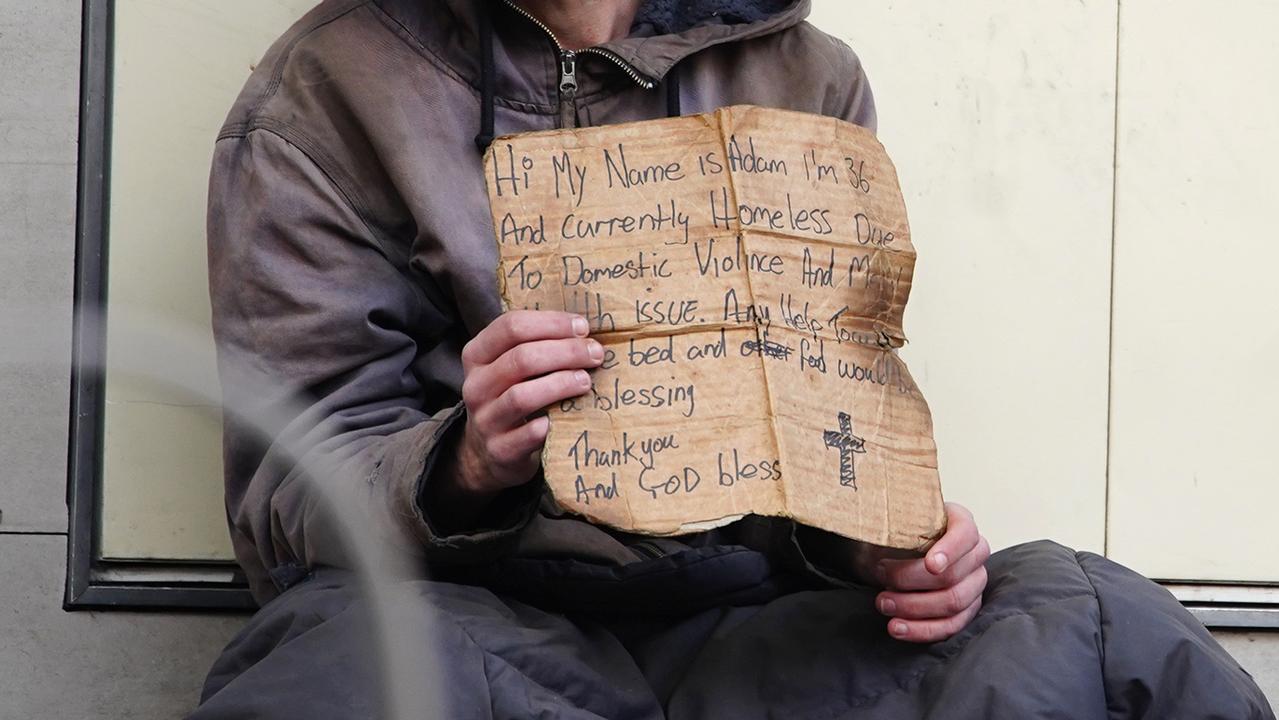 Hi My Name is Adam I'm 36
And Currently Homeless Due
To Domestic Violnce And
issue. Any Help
bed and food would
a blessing
Thank you
And GOD bless